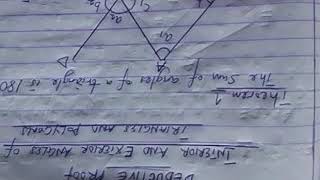 DEDUCTIVE PROOF
INTERIOR AND EXTERIOR ANGLES OF
TRIANGLES AND POLYGONS
Theorem 1
The Sum of angles of a triangle is 180
a₁
a₂
b₂